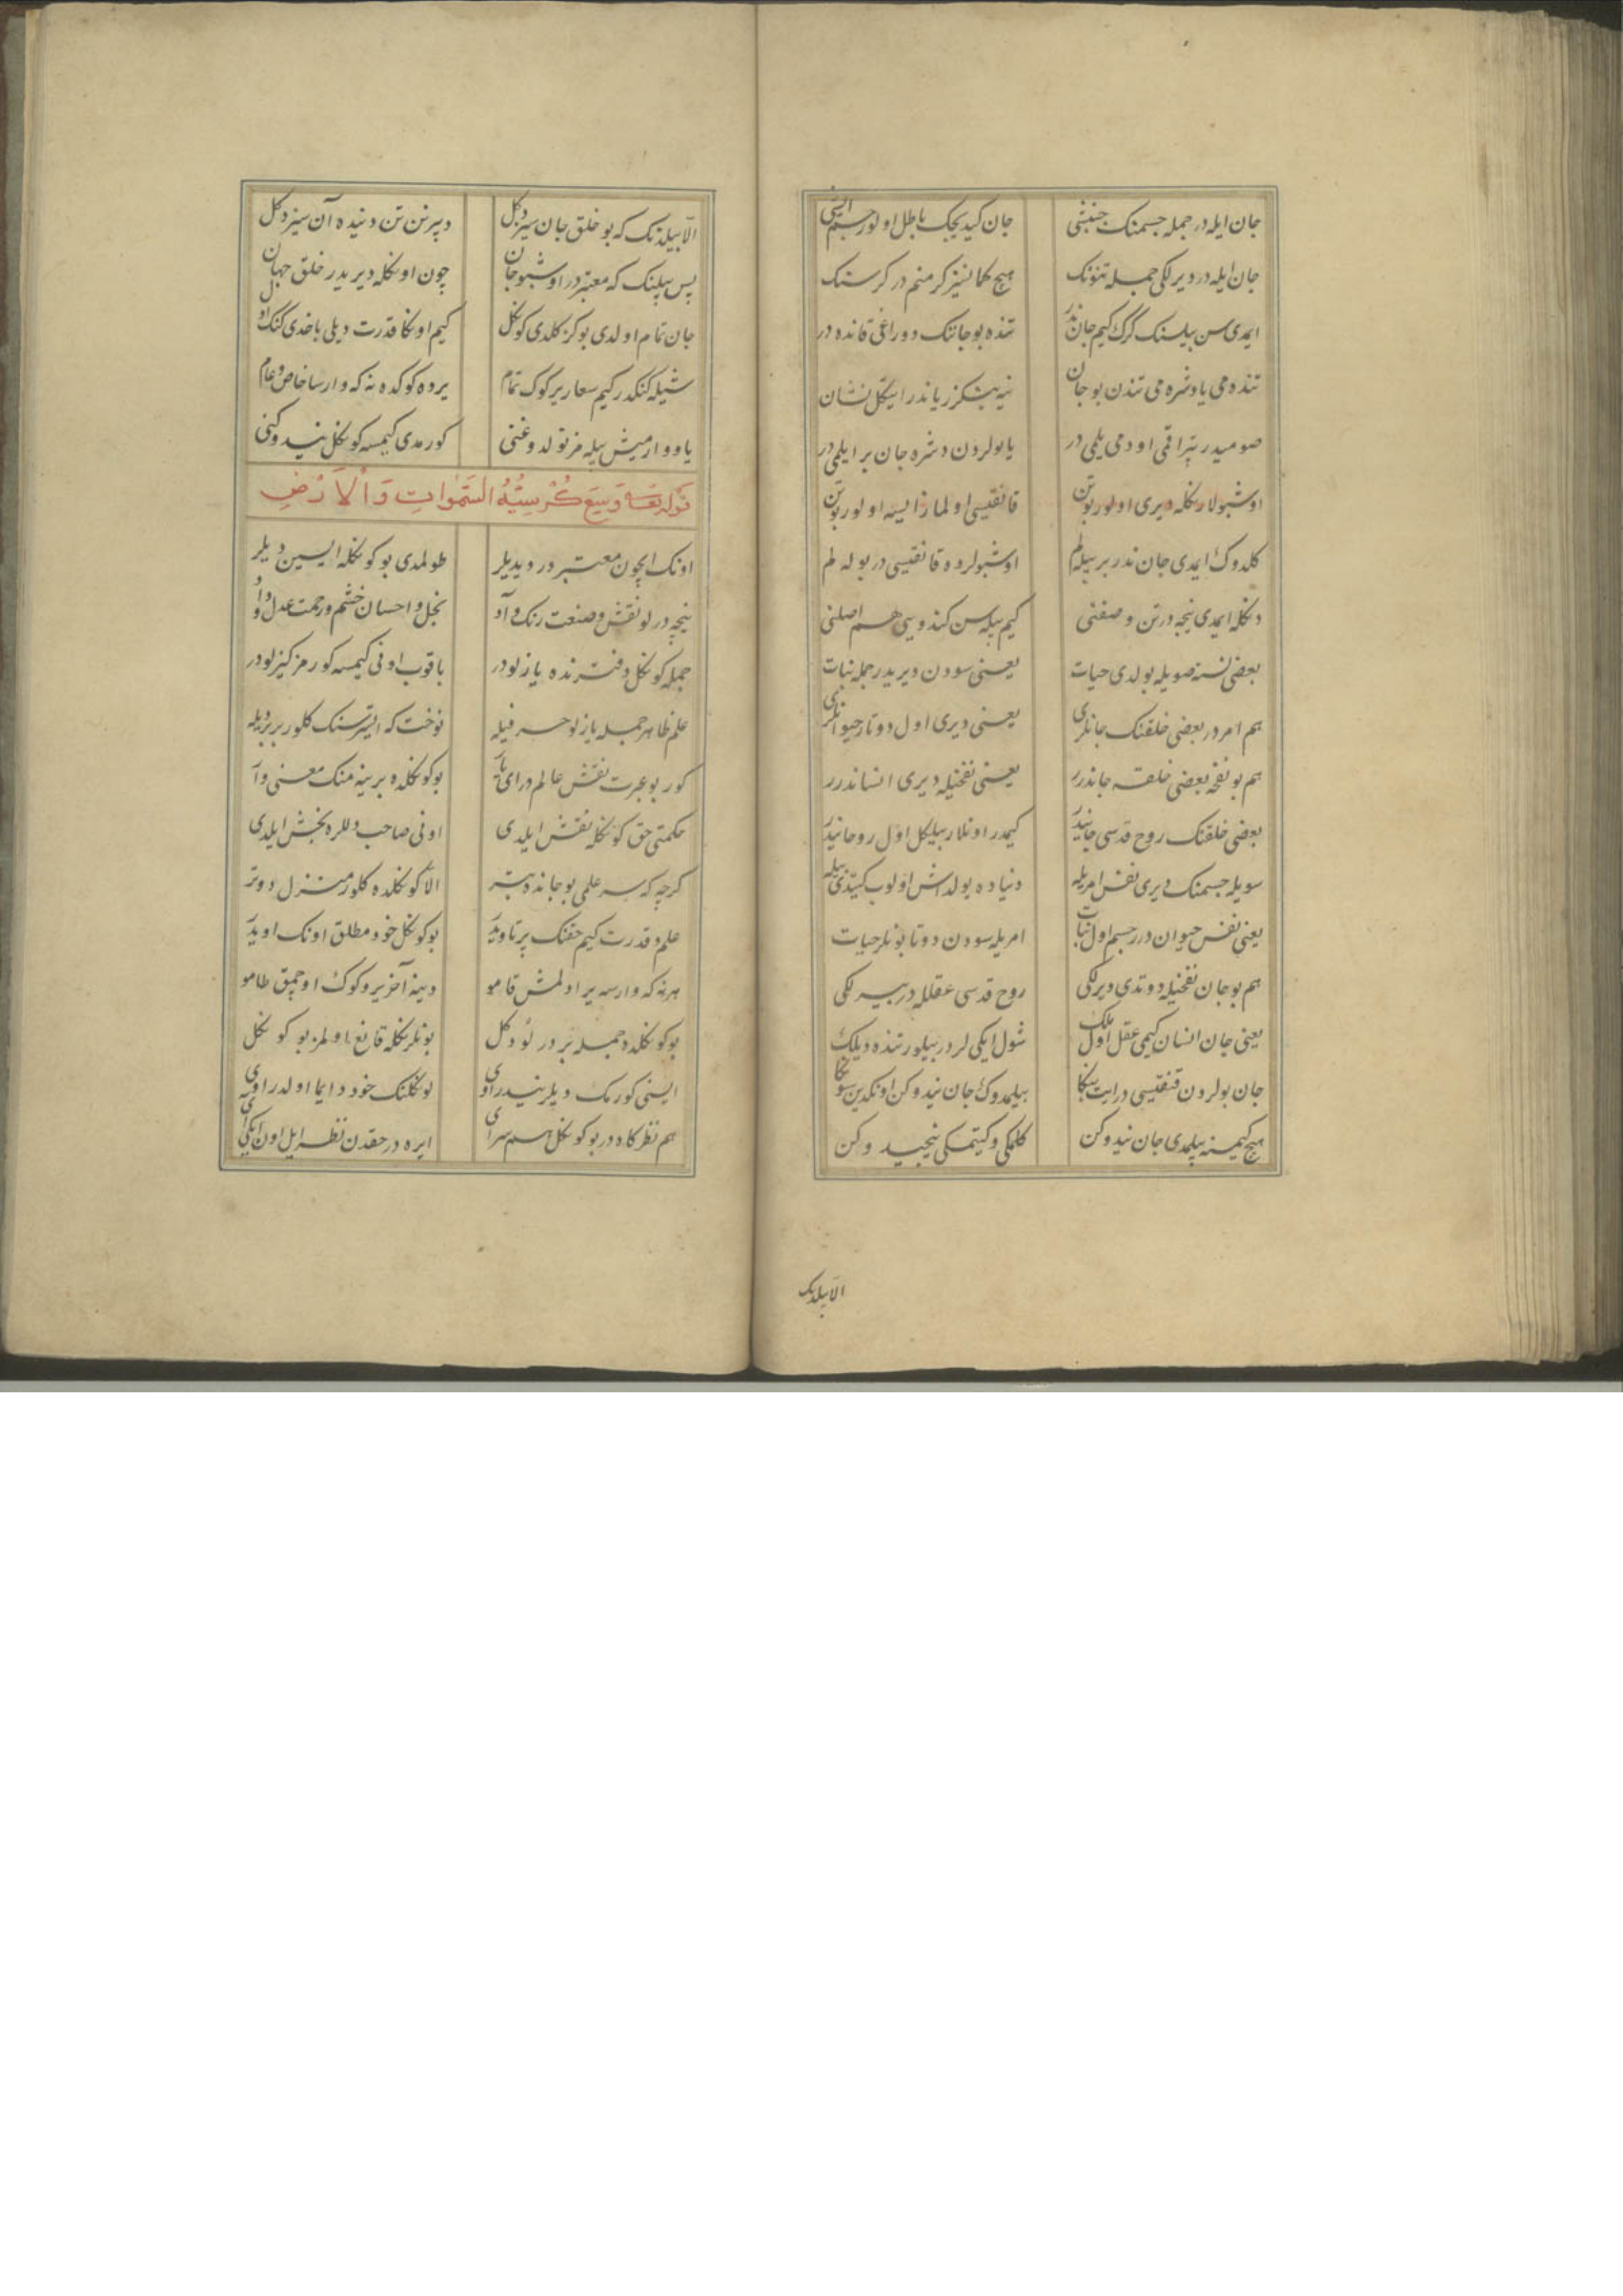 جان ایله در جمله جسمنک جنبشی جان کیدیجک باطل اولور جسم ایشی
جان ایله در دیرلکی جمله تنونک هیچ کمانسیز کر منم در کر سنک
ایمدی سن بیلسنک کرک کیم جان ندر تنده بو جاننک دوراغی قانده در
تنده می یا دشره می تندن بو جان نیه بنکزر یا ندر ایتکل نشان
صومیدر پتراقمی اودمی یلمی در یا بولردن دشره جان بر ایلمی در
اوشبولارنکله دیری اولور بو تن قانقیسی اولمازایسه اولور بو تن
کلدوک ایمدی جان ندر بر بیله لم اوشبولرده قانقیسی در بوله لم
دنکله ایمدی نیجه در تن وصفنی کیم بیله سن کندوسی هم اصلنی
بعضی نسنه صویله بولدی حیات یعنی سودن دیریدر جمله نبات
هم امردر بعضی خلقنک جانلری یعنی دیری اول دوتار حیوانلری
هم بو نفخه بعضی خلقه جاندرر یعنی نفخیله دیری انساندرر
بعضی خلقنک روح قدسی جانیدر کیمدر اونلار بیلکل اول روحانیدر
سویله جسمنک دیری نفس امریله دنیاده یولداش اولوب کیتدی بیله
یعنی نفس حیوان درر جسم اول نبات امریله سودن دوتا بونلر حیات
هم بو جان نفخیله دوتدی دیرلکی روح قدسی عقلله در بیرلکی
یعنی جان انسان کیمی عقل اول ملک شول ایکی لردر بیلور تنده دیلک
جان بولردن قنقیسی در ایت بکا بیلمدوک جان نیدوکن اونکدین سوکا
هیچ کیمسنه بیلمدی جان نیدوکن کلمکی وکیتمکی نیجیدوکن
الا بیلدنک
الا بیلدنک که بو خلق جان سیز دکل دپرنن تن دنیده آن سیز دکل
پس بیلنک که معتبردر اوشبو جان چون اونکله دیریدر خلق جهان
جان تمام اولدی بو کز کلدی کونکل کیم اونکا قدرت دیلی باخدی کنک اول
شیله کنکدر کیم سغار یر کوک تمام یرده کوکده نه که وارسا خاص وعام
یاووارمیش بیله مز تولدوغنی کورمدی کیمسه کونکل نیدوکنی
قوله تعالی وسع کرسیه السموات والارض
اونک ایچون معتبردر دیدیلر طولمدی بو کونکله ایسین دیلر
نیجه درلو نقش وصنعت رنک وآو بخل واحسان خشم ورحمت عدل وداو
جمله کونکل دفترنده یازلودر باقوب اونی کیمسه کورمز کیزلودر
علم ظاهر جمله یازلو حرفیله نوخت که ایسترسنک کلور بر بر دیله
کور بو عبرت نقش عالم در ای یار بو کونکلده برینه منک معنی وار
حکمتی حق کونکله نقش ایلدی اونی صاحب دللره بخش ایلدی
کرچه که سر علمی بو جانده بتر الا کونکلده کلور منزل دوتر
علم وقدرت کیم حقنک پرتاویدر بو کونکل خود مطلق اونک اویدر
هرنه که وارسه یر اولمش قامو دینه آخر یر وکوک اوچمق طامو
بو کونکلده جمله بر درلو دکل بونلرنکله قانغ اولمز بو کونکل
ایسنی کورمک دیلر نیدر اوی لو نکلنک خود دایما اولدر اوی
هم نظرکاه در بو کونکل هم سرای ایره در حقدن نظر ایل اون ایکی آی